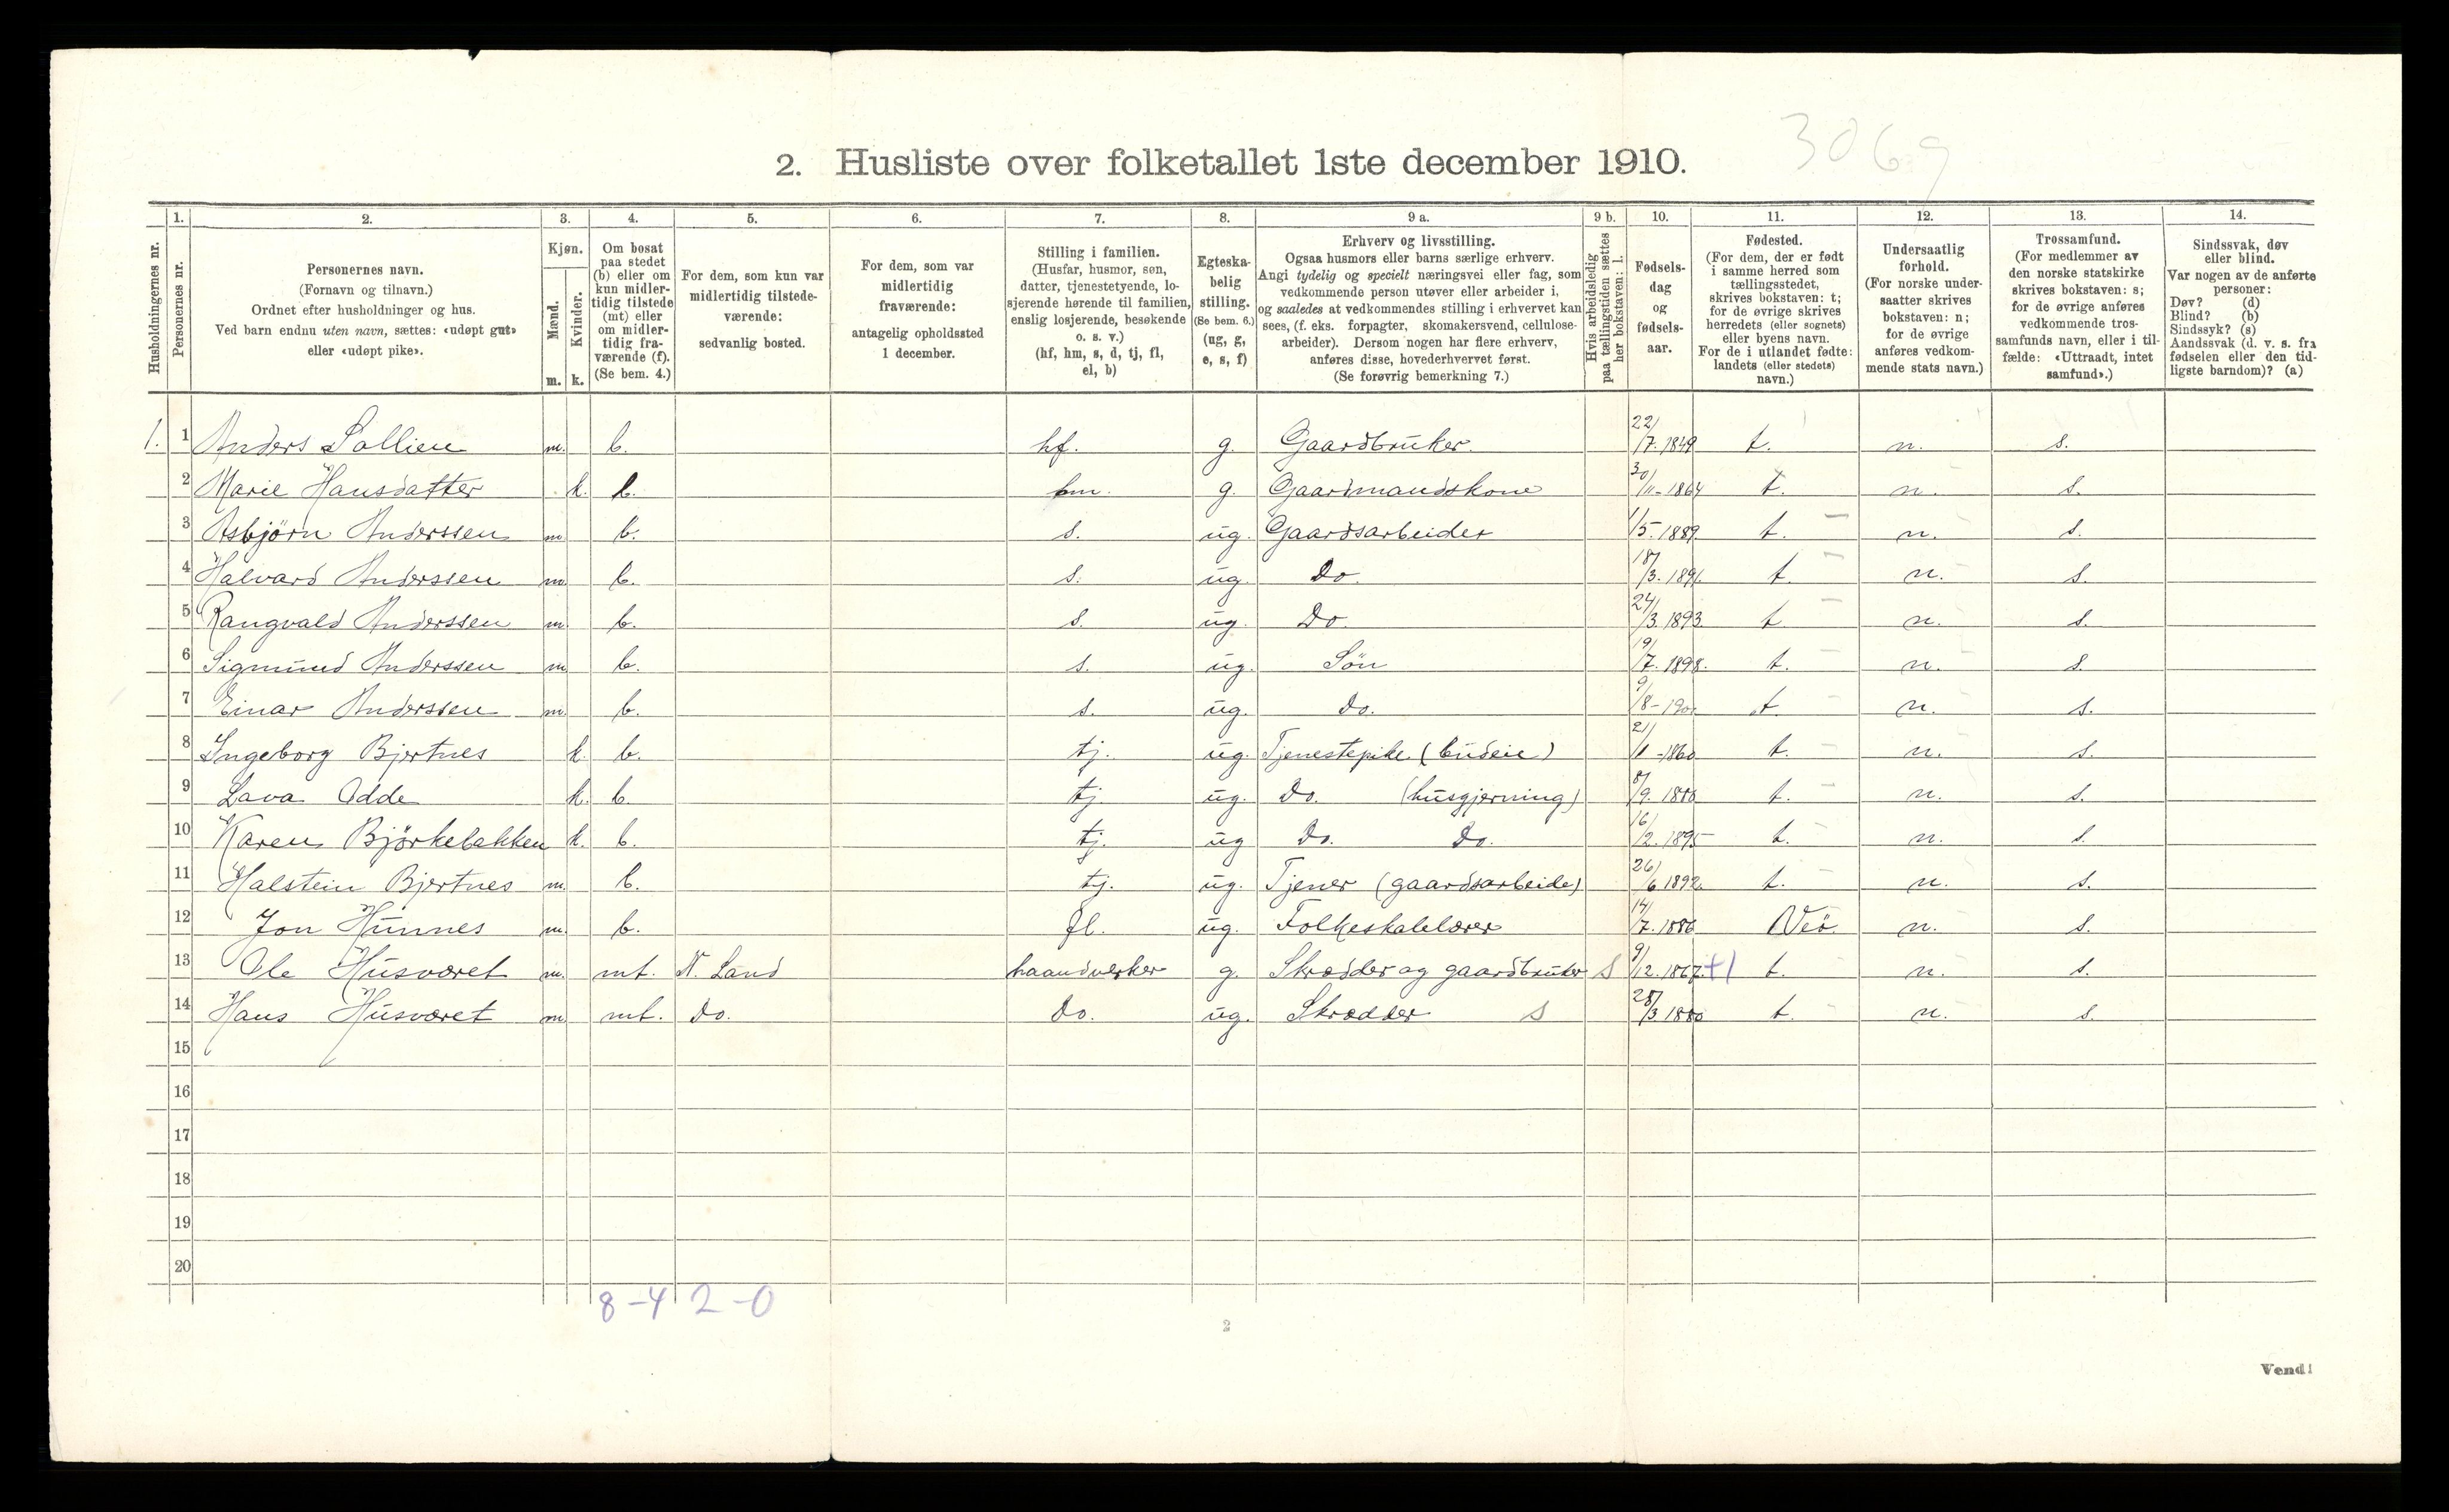 3069
2. Husliste over folketallet 1ste december 1910.
Husholdningernes nr.
1. Personernes nr.
2. Personernes navn. (Fornavn og tilnavn.) Ordnet efter husholdninger og hus. Ved barn endnu uten navn, sættes: «udøpt gut» eller «udøpt pike».
3. Kjøn. Mænd. m. Kvinder. k.
4. Om bosat paa stedet (b) eller om kun midlertidig tilstede (mt) eller om midlertidig fraværende (f). (Se bem. 4.)
5. For dem, som kun var midlertidig tilstedeværende: sedvanlig bosted.
6. For dem, som var midlertidig fraværende: antagelig opholdssted 1 december.
7. Stilling i familien. (Husfar, husmor, søn, datter, tjenestetyende, losjerende hørende til familien, enslig losjerende, besøkende o. s. v.) (hf, hm, s, d, tj, fl, el, b)
8. Egteskabelig stilling. (Se bem. 6.) (ug, g, e, s, f)
9 a. Erhverv og livsstilling. Ogsaa husmors eller barns særlige erhverv. Angi tydelig og specielt næringsvei eller fag, som vedkommende person utøver eller arbeider i, og saaledes at vedkommendes stilling i erhvervet kan sees, (f. eks. forpagter, skomakersvend, cellulosearbeider). Dersom nogen har flere erhverv, anføres disse, hovederhvervet først. (Se forøvrig bemerkning 7.)
9 b. Hvis arbeidsledig paa tællingstiden sættes her bokstaven: l.
10. Fødselsdag og fødselsaar.
11. Fødested. (For dem, der er født i samme herred som tællingsstedet, skrives bokstaven: t; for de øvrige skrives herredets (eller sognets) eller byens navn. For de i utlandet fødte: landets (eller stedets) navn.)
12. Undersaatlig forhold. (For norske undersaatter skrives bokstaven: n; for de øvrige anføres vedkommende stats navn.)
13. Trossamfund. (For medlemmer av den norske statskirke skrives bokstaven: s; for de øvrige anføres vedkommende trossamfunds navn, eller i tilfælde: «Uttraadt, intet samfund».)
14. Sindssvak, døv eller blind. Var nogen av de anførte personer: Døv? (d) Blind? (b) Sindssyk? (s) Aandssvak (d. v. s. fra fødselen eller den tidligste barndom)? (a)
1. 1 Anders Sollien m. b. hf. g. Gaardbruker 22/7. 1849 t. n. s.
2 Marie Hansdatter k. b. hm. g. Gaardmandskone 30/11-1864 t. n. s.
3 Asbjörn Anderssen m. b. s. ug. Gaardsarbeider 1/5. 1889 t. n. s.
4 Halvard Anderssen m. b. s. ug. Do. 18/3. 1891. t. n. s.
5 Rangvald Anderssen m. b. s. ug. Do. 24/3. 1893 t. n. s.
6 Sigmund Anderssen m. b. s. ug. Sön 19/7. 1898. t. n. s.
7 Einar Anderssen m. b. s. ug. Do. 9/8- t. n. s.
8 Ingeborg Bjertnes k. b. tj. ug. Tjenestepike (budeie) 21/ -1860 t. n. s.
9 Lava Odde k. b. tj. ug. Do. (husgjerning) 8/9. t. n. s.
10 Karen Björkebakken k. b. tj. ug Do. Do. 16/2. 1895 t. n. s.
11 Halstein Bjertnes m. b. tj. ug. Tjener (gaardsarbeide) 26/6 1892 t. n. s.
12 Jon Hunnes m. b. fl. ug. Folkeskolelærer 14/7. 1886 Veö n. s.
13 Ole Husværet m. mt. N. Land haandverker g. Skrædder og gaardbruker s 9/12. 1867 +1 t. n. s.
14 Hans Husværet m mt. Do. Do. ug. Skrædder s 28/3 1880 t. n. s.
15
16
17
18
19
20
8-4 2-0
2
Vend!